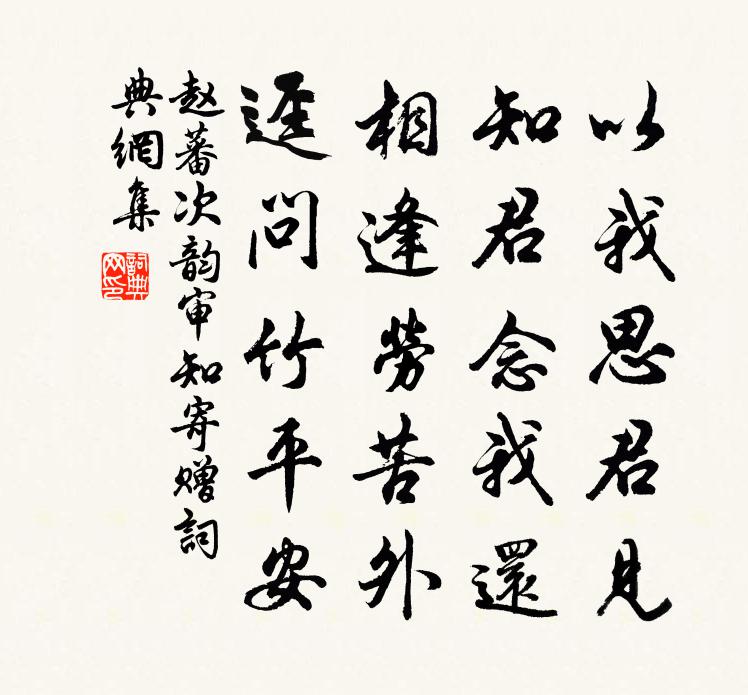 以我思君見
知君念我還
相逢勞苦外
遅問竹平安
赵蕃次韵审知寄赠詞
典網集
詞典网印